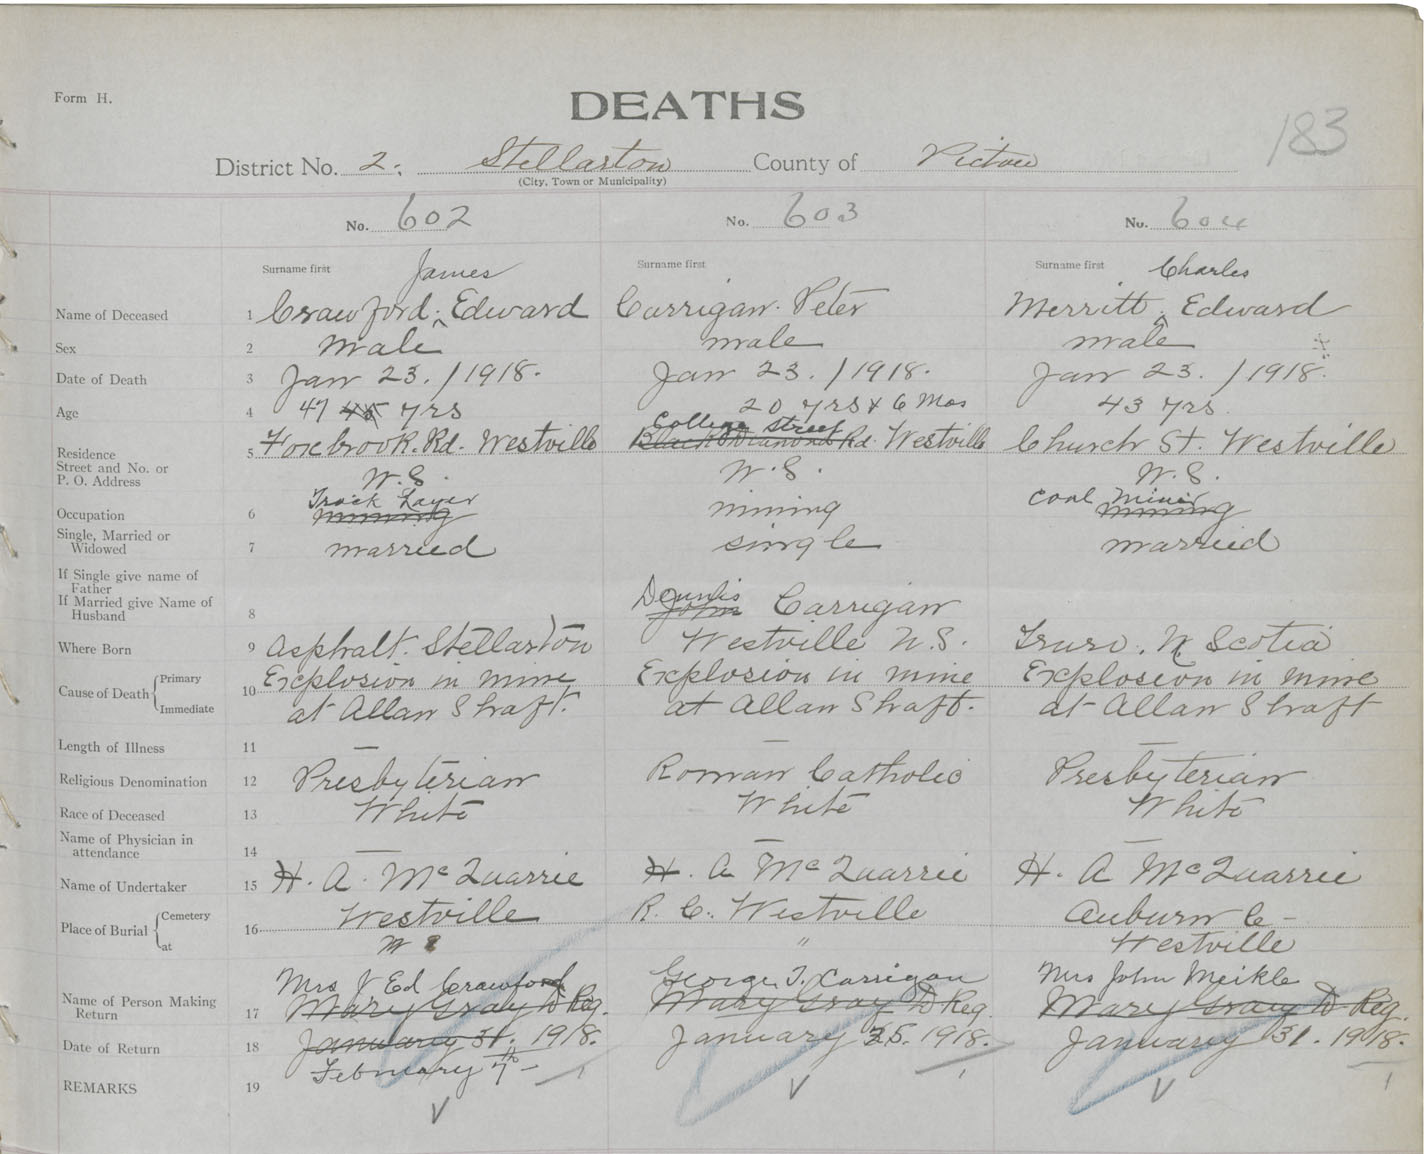 Form H.
DEATHS
183
District No. 2; Stellarton County of Pictou
(City, Town or Municipality)
No. 602 No. 603 No. 604
Surname first James Surname first Surname first Charles
Name of Deceased 1 Crawford. Edward Carrigan. Peter Merritt, Edward
Sex 2 male male male
Date of Death 3 Jan 23. / 1918. Jan 23. / 1918. Jan 23. / 1918.
Age 4 47 45 yrs 20 yrs & 6 Mos 43 yrs.
College Street
Residence 5 Foxbrook. Rd. Westville Black Diamond Rd. Westville Church St. Westville
Street and No. or
P. O. Address N.S. N.S. N.S.
Track Layer Coal Miner
Occupation 6 mining mining mining
Single, Married or
Widowed 7 married single married
If Single give name of
Father
If Married give Name of Dennis
Husband 8 John Carrigan
Where Born 9 Asphalt. Stellarton Westville N.S. Truro. N Scotia
Cause of Death Primary 10 Explosion in mine Explosion in mine Explosion in mine
Immediate at Allan Shaft. at Allan Shaft. at Allan Shaft
Length of Illness 11 — — —
Religious Denomination 12 Presbyterian Roman Catholic Presbyterian
Race of Deceased 13 White White White
Name of Physician in
attendance 14 — — —
Name of Undertaker 15 H. A. McQuarrie H. A McQuarrie H. A McQuarrie
Place of Burial Cemetery 16 Westville R. C. Westville Auburn C-
at N S " Westville
Mrs J Ed Crawford George T. Carrigan Mrs John Meikle
Name of Person Making
Return 17 Mary Gray D Reg. Mary Gray D Reg. Mary Gray D Reg.
Date of Return 18 January 31. 1918. January 35. 1918. January 31. 1918.
February 7th -
REMARKS 19